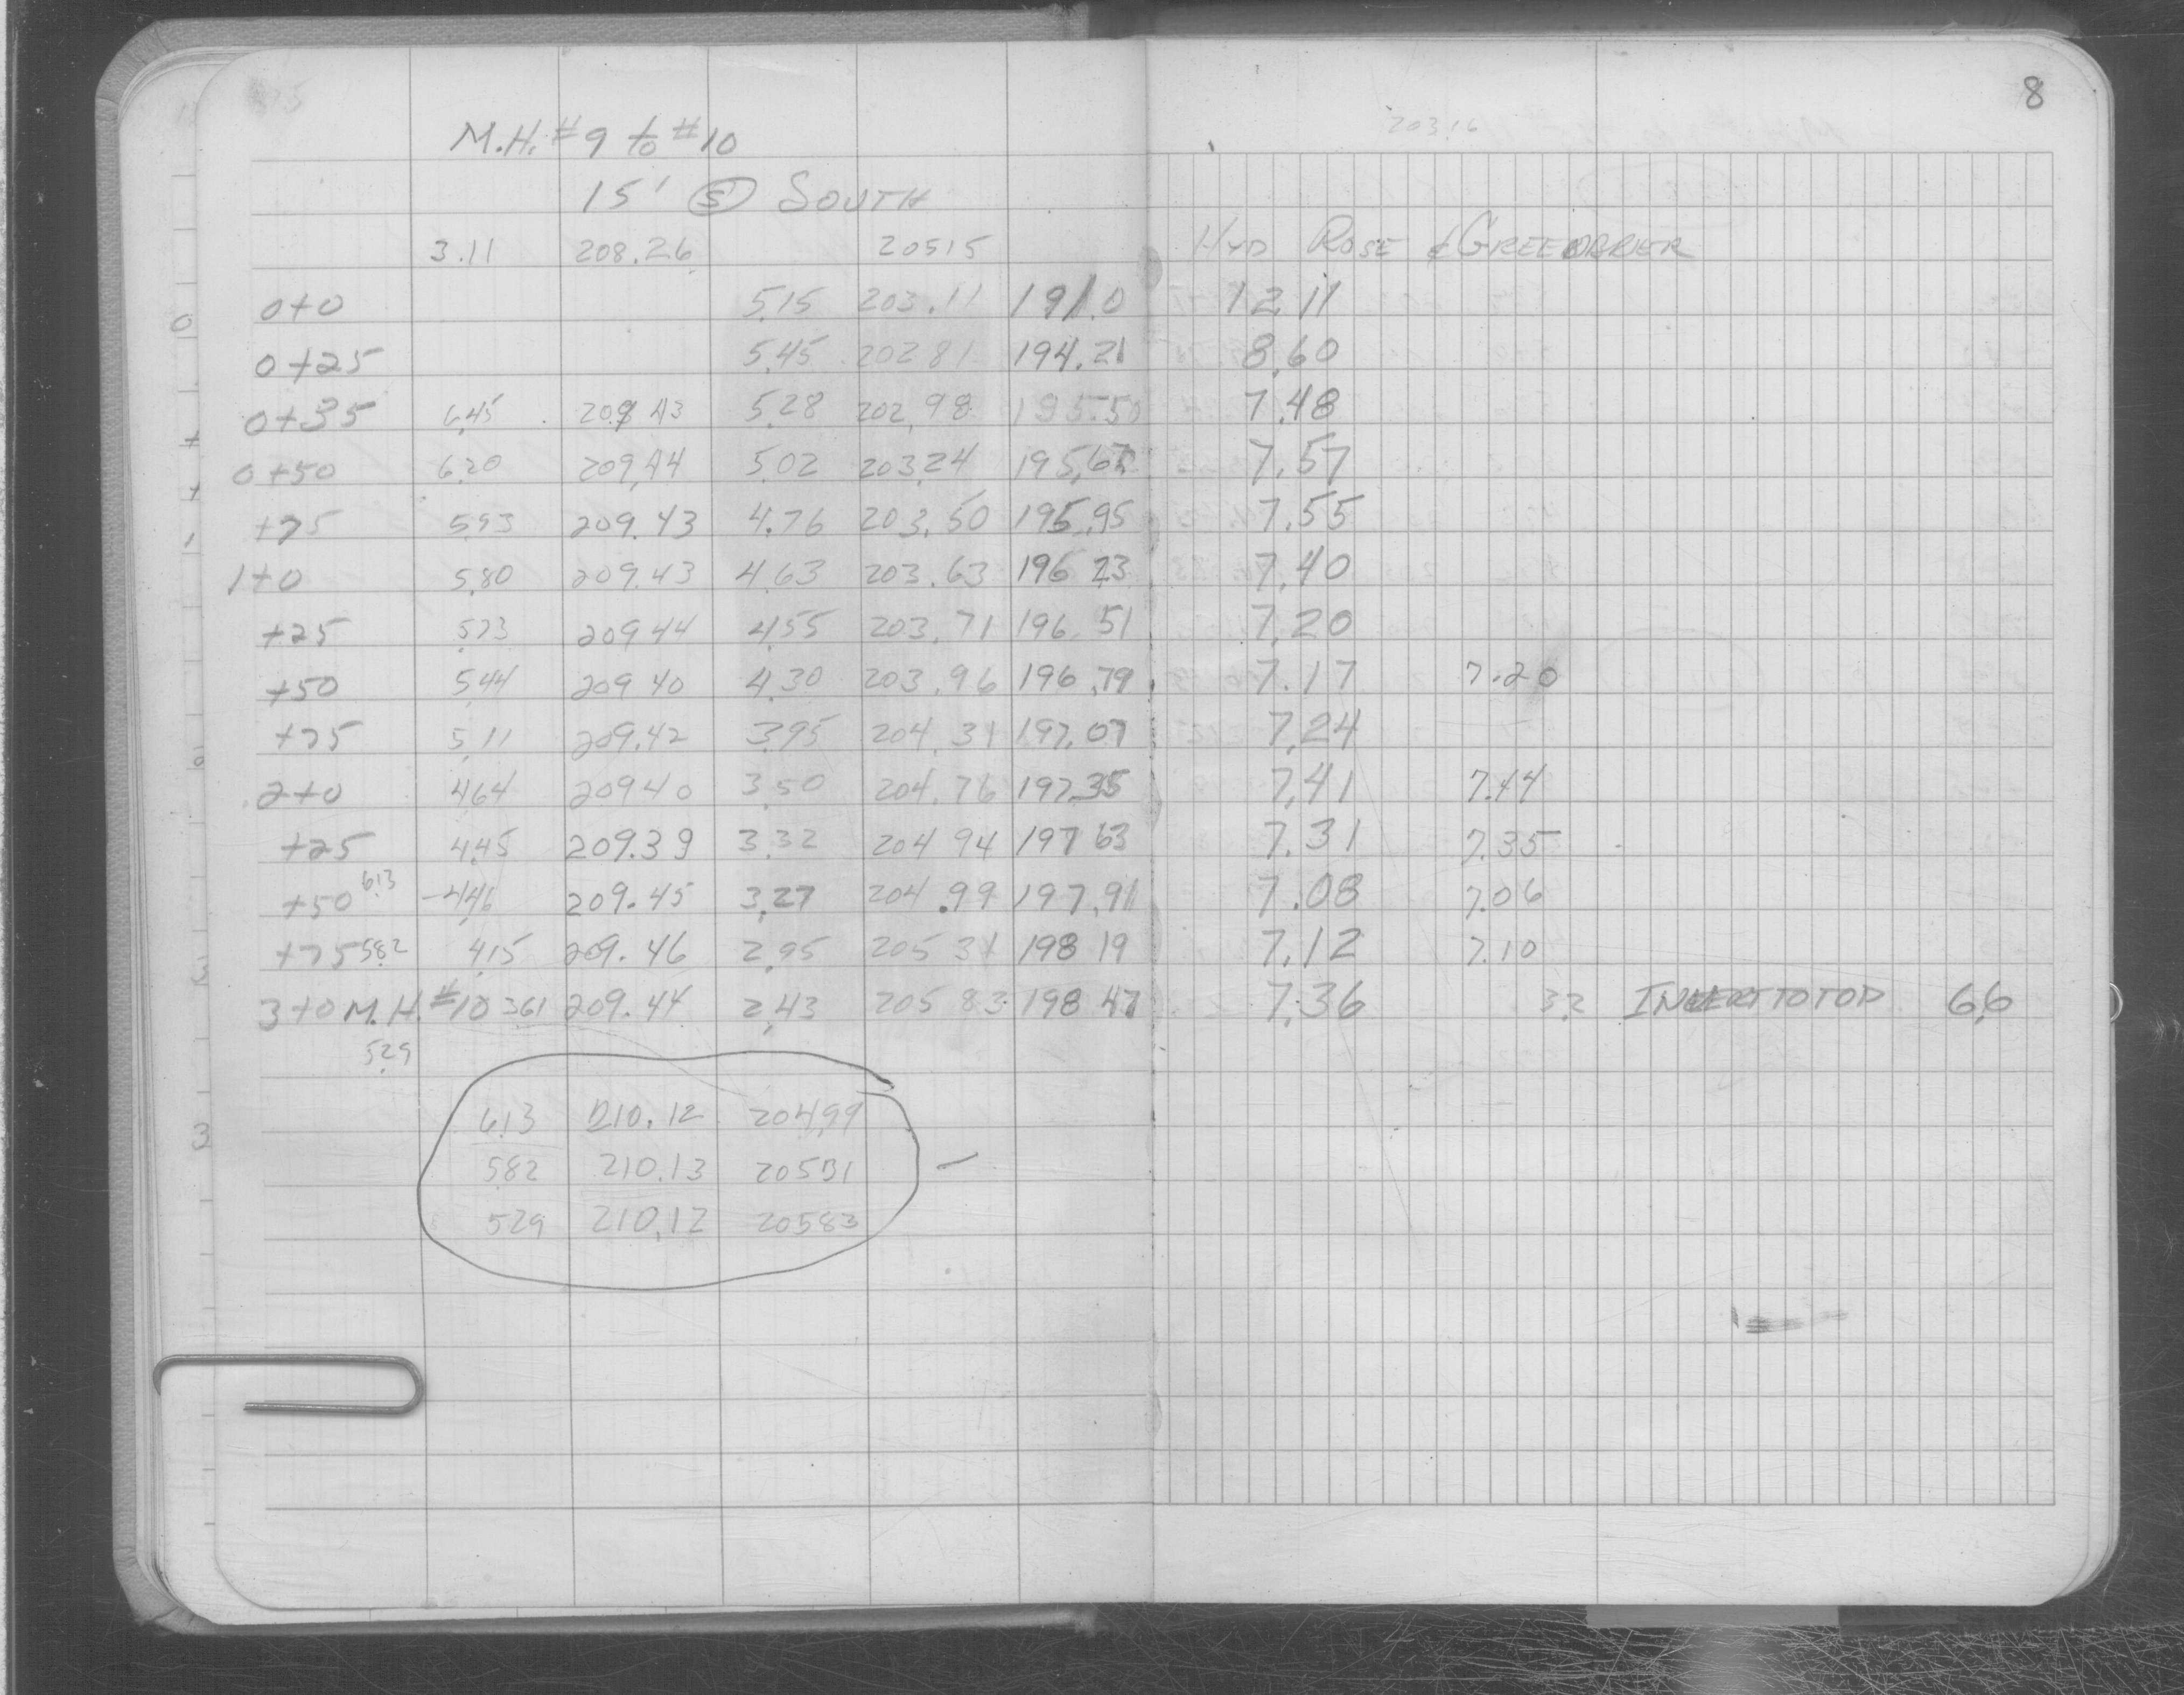 8
203.16
M.H. #9 to #10
15' (5') SOUTH
3.11 208.26 205 15 HYD ROSE & GREENBRIER
0+0 5.15 203.11 191.0 12.11
0+25 5.45 202 81 194.21 8.60
0+35 6.45 209 43 5.28 202.98 195.50 7.48
0+50 6.20 209.44 5.02 203.24 195.67 7.57
+75 5.93 209.43 4.76 203.50 195.95 7.55
1+0 5.80 209.43 4.63 203.63 196 23 7.40
+25 5.73 209 44 4.55 203.71 196.51 7.20
+50 5.44 209 40 4.30 203.96 196.79 7.17 7.20
+75 5.11 209.42 3.95 204.31 197.07 7.24
2+0 4.64 209 40 3.50 204.76 197.35 7.41 7.44
+25 4.45 209.39 3.32 204 94 197 63 7.31 7.35
+50 6.13 -4.46 209.45 3.27 204.99 197.91 7.08 7.06
+75 5.82 4.15 209.46 2.95 205 31 198 19 7.12 7.10
3+0 M.H. #10 3.61 209.44 2.43 205 83 198 47 7.36 3.2 INVERT TO TOP 6.6
5.29
6.13 210.12 204.99
5.82 210.13 205 31
5.29 210.12 205 83